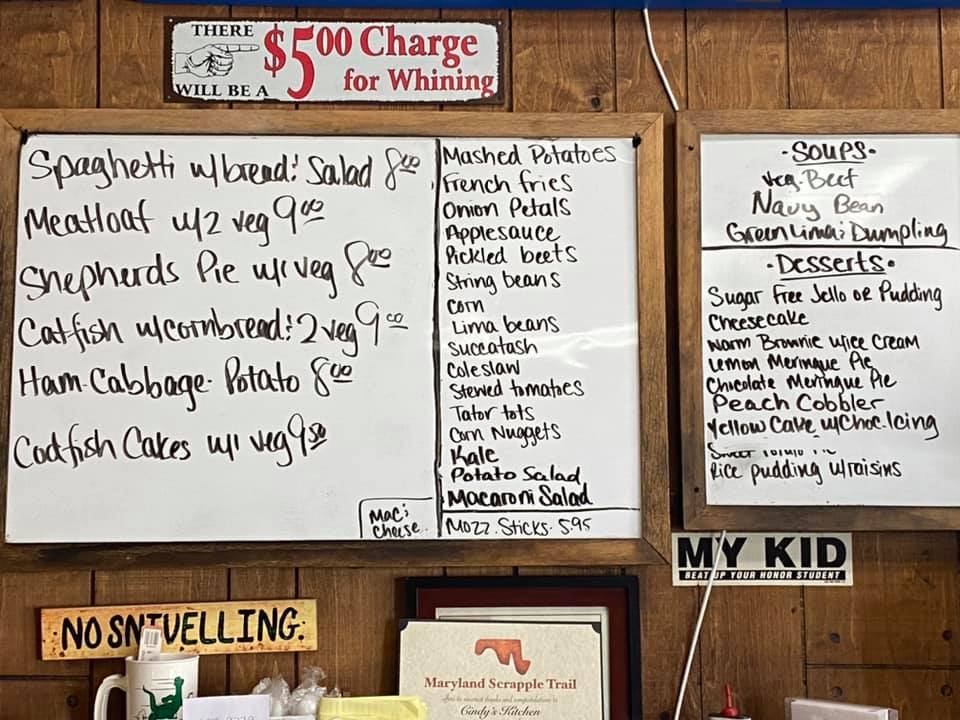 THERE
WILL BE A
$5.00 Charge
for Whining
Spaghetti w/bread & Salad 8.00
Meatloaf w/2 veg 9.00
Shepherds Pie w/1 veg 8.00
Catfish w/cornbread & 2 veg 9.00
Ham-Cabbage-Potato 8.00
Codfish Cakes w/1 veg 9.50
Mac &
Cheese
Mashed Potatoes
French fries
Onion Petals
Applesauce
Pickled beets
String beans
Corn
Lima beans
Succatash
Coleslaw
Stewed tomatoes
Tator tots
Corn Nuggets
Kale
Potato Salad
Macaroni Salad
Mozz. Sticks 5.95
-Soups-
Veg. Beef
Navy Bean
Green Lima & Dumpling
-Desserts-
Sugar Free Jello or Pudding
Cheesecake
Warm Brownie w/ice cream
Lemon Meringue Pie
Chocolate Meringue Pie
Peach Cobbler
Yellow Cake w/Choc. Icing
Rice pudding w/raisins
MY KID
BEAT UP YOUR HONOR STUDENT
NO SNIVELLING.
Maryland Scrapple Trail
Cindy's Kitchen